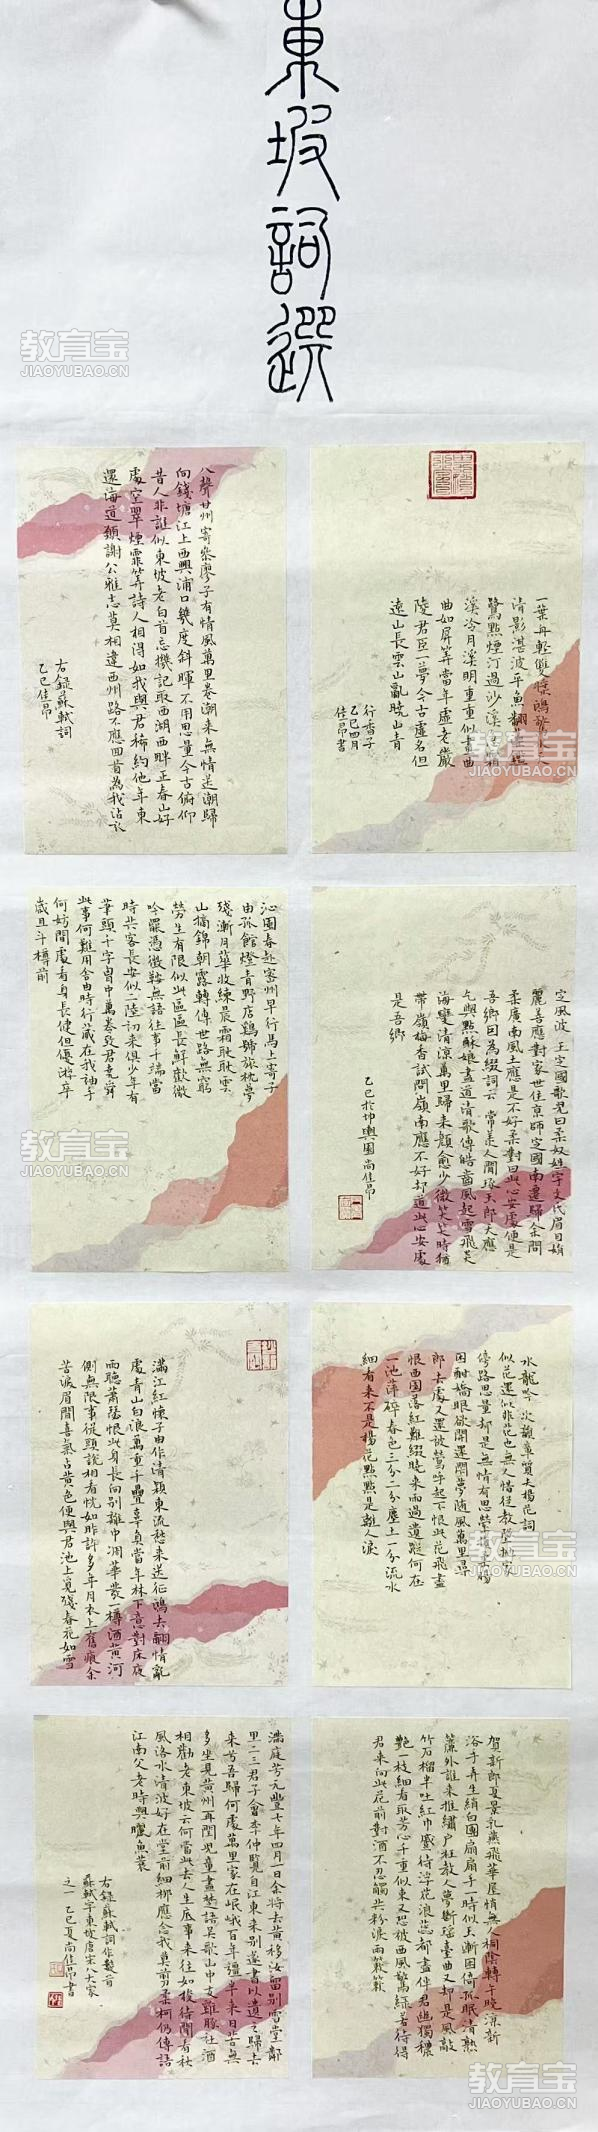 東坡詞選
一葉舟輕雙槳鴻驚水天
清影湛波平魚翻藻鑑
鷺點煙汀過沙溪急霜
溪冷月溪明重重似畫曲
曲如屏筭當年虛老嚴
陵君臣一夢今古虛名但
遠山長雲山亂曉山青
行香子
乙巳四月
佳昂書
八聲甘州寄參廖子有情風萬里卷潮來無情送潮歸
向錢塘江上西興浦口幾度斜暉不用思量今古俯仰
昔人非誰似東坡老白首忘機記取西湖西畔正春山好
處空翠煙霏筭詩人相得如我與君稀約他年東
還海道願謝公雅志莫相違西州路不應回首為我沾衣
右錄蘇軾詞
乙巳佳昂
定風波 王定國歌兒曰柔奴姓宇文氏眉目娟
麗善應對家世住京師定國南遷歸余問
柔廣南風土應是不好柔對曰此心安處便是
吾鄉因為綴詞云 常羨人間琢玉郎天應
乞與點酥娘盡道清歌傳皓齒風起雪飛炎
海變清涼萬里歸來顏愈少微笑笑時猶
帶嶺梅香試問嶺南應不好却道此心安處
是吾鄉
乙巳於坤輿園尚佳昂
沁園春赴密州早行馬上寄子
由孤館燈青野店鷄號旅枕夢
殘漸月華收練晨霜耿耿雲
山摛錦朝露轉傳世路無窮
勞生有限似此區區長鮮歡微
吟罷憑征鞍無語往事千端當
時共客長安似二陸初來俱少年有
筆頭千字胷中萬卷致君堯舜
此事何難用舍由時行藏在我袖手
何妨閒處看身長健但優游卒
歲且斗樽前
水龍吟 次韻章質夫楊花詞
似花還似非花也無人惜從教墜拋家
傍路思量却是無情有思縈損柔腸
困酣嬌眼欲開還閉夢隨風萬里尋
郎去處又還被鶯呼起不恨此花飛盡
恨西園落紅難綴曉來雨過遺蹤何在
一池萍碎春色三分二分塵土一分流水
細看來不是楊花點點是離人淚
滿江紅懷子由作清潁東流愁來送征鴻去翮情亂
處青山白浪萬重千疊辜負當年林下意對床夜
雨聽蕭瑟恨此身長向別離中凋華髮一樽酒黃河
側無限事從頭說相看恍如昨許多年月衣上舊痕余
苦淚眉間喜氣占黃色便與君池上覓殘春花如雪
賀新郎夏景乳燕飛華屋悄無人桐陰轉午晚涼新
浴手弄生綃白團扇扇手一時似玉漸困倚孤眠清熟
簾外誰來推繡戶枉教人夢斷瑤臺曲又却是風敲
竹石榴半吐紅巾蹙待浮花浪蕊都盡伴君幽獨穠
艷一枝細看取芳心千重似束又恐被西風驚綠若待得
君來向此花前對酒不忍觸共粉淚兩簌簌
滿庭芳元豐七年四月一日余將去黃移汝留別雪堂鄰
里二三君子會李仲覽自江東來別遂書以遺之歸去
來兮吾歸何處萬里家在岷峨百年彊半來日苦無
多坐見黃州再閏兒童盡楚語吳歌山中友雞豚社酒
相勸老東坡云何當此去人生底事來往如梭待閒看秋
風洛水清波好在堂前細柳應念我莫剪柔柯仍傳語
江南父老時與曬魚蓑
右錄蘇軾詞作數首
蘇軾字東坡唐宋八大家
之一 乙巳夏尚佳昂書
教育宝
JIAOYUBAO.CN
教育宝
JIAOYUBAO.CN
教育宝
JIAOYUBAO.CN
教育宝
JIAOYUBAO.CN
教育宝
JIAOYUBAO.CN
教育宝
JIAOYUBAO.CN
教育宝
JIAOYUBAO.CN